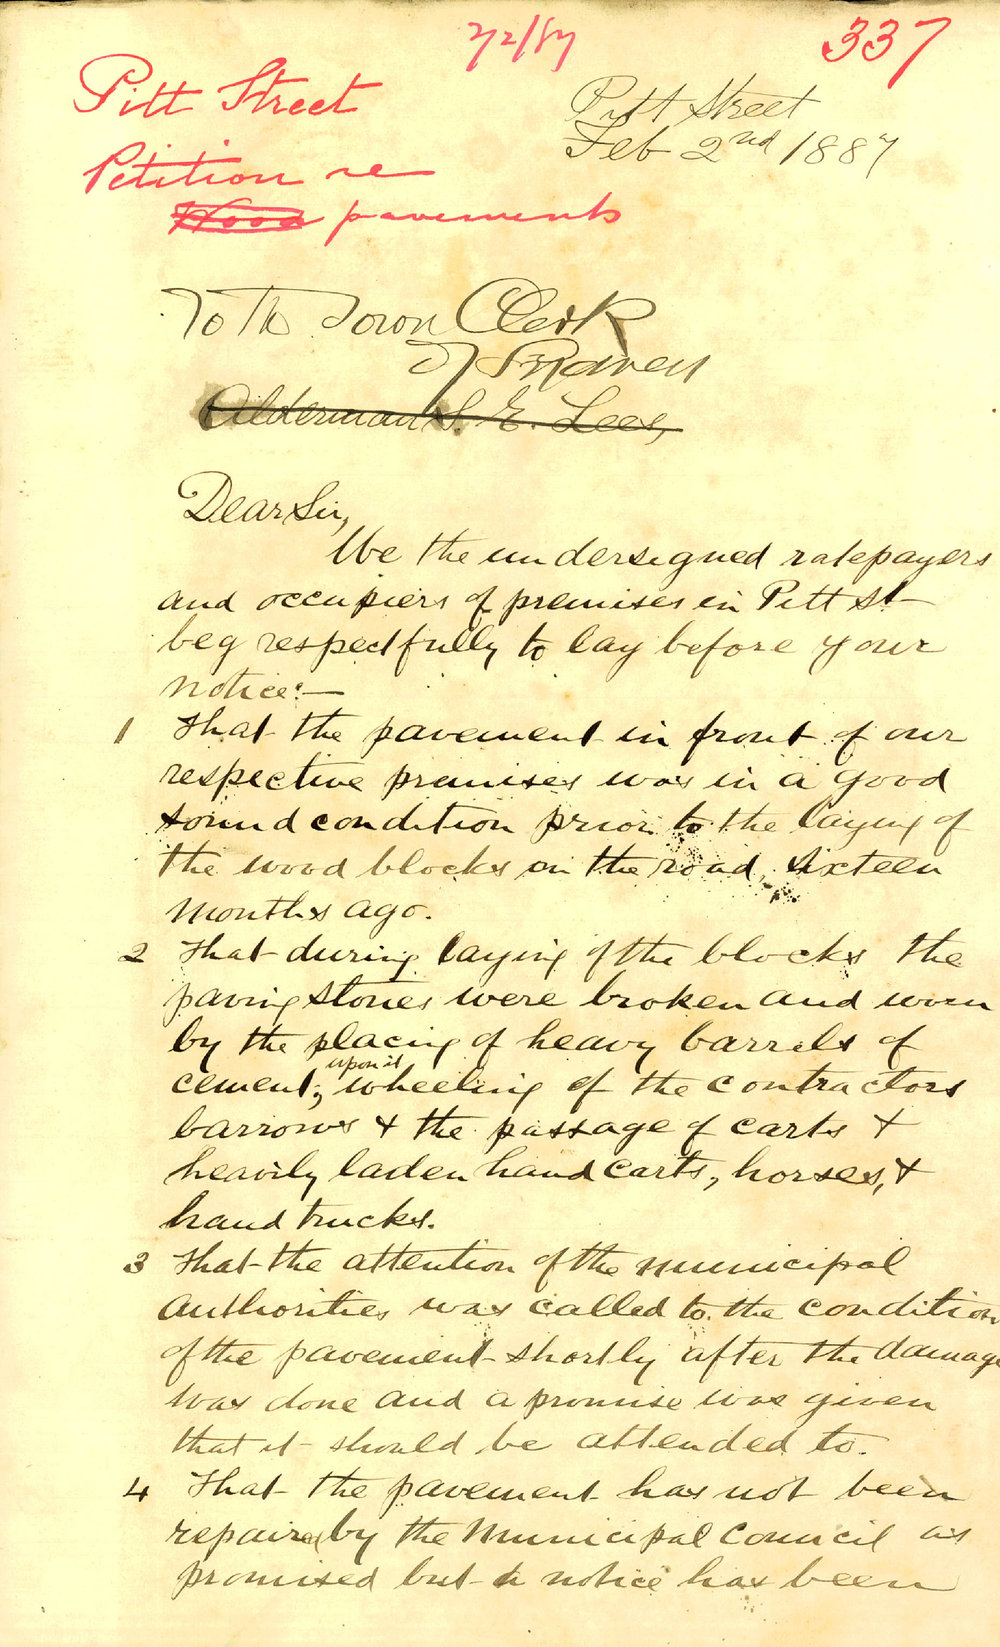 2/2/87
337
Pitt Street
Petition re
Wood pavements
Pitt Street
Feb 2nd 1887
To The Town Clerk
of
Alderman S. E. Lees,
Dear Sir,
We the undersigned ratepayers
and occupiers of premises in Pitt St
beg respectfully to lay before your
notice:—
1 That the pavement in front of our
respective premises was in a good
sound condition prior to the laying of
the wood blocks on the road, sixteen
months ago.
2 That during laying of the blocks the
paving stones were broken and worn
by the placing of heavy barrels of
cement, upon it, wheeling of the contractors
barrows & the passage of carts &
heavily laden hand carts, horses, &
hand trucks.
3 That the attention of the municipal
authorities was called to the condition
of the pavement shortly after the damage
was done and a promise was given
that it should be attended to.
4 That the pavement has not been
repaired by the Municipal Council as
promised but a notice has been